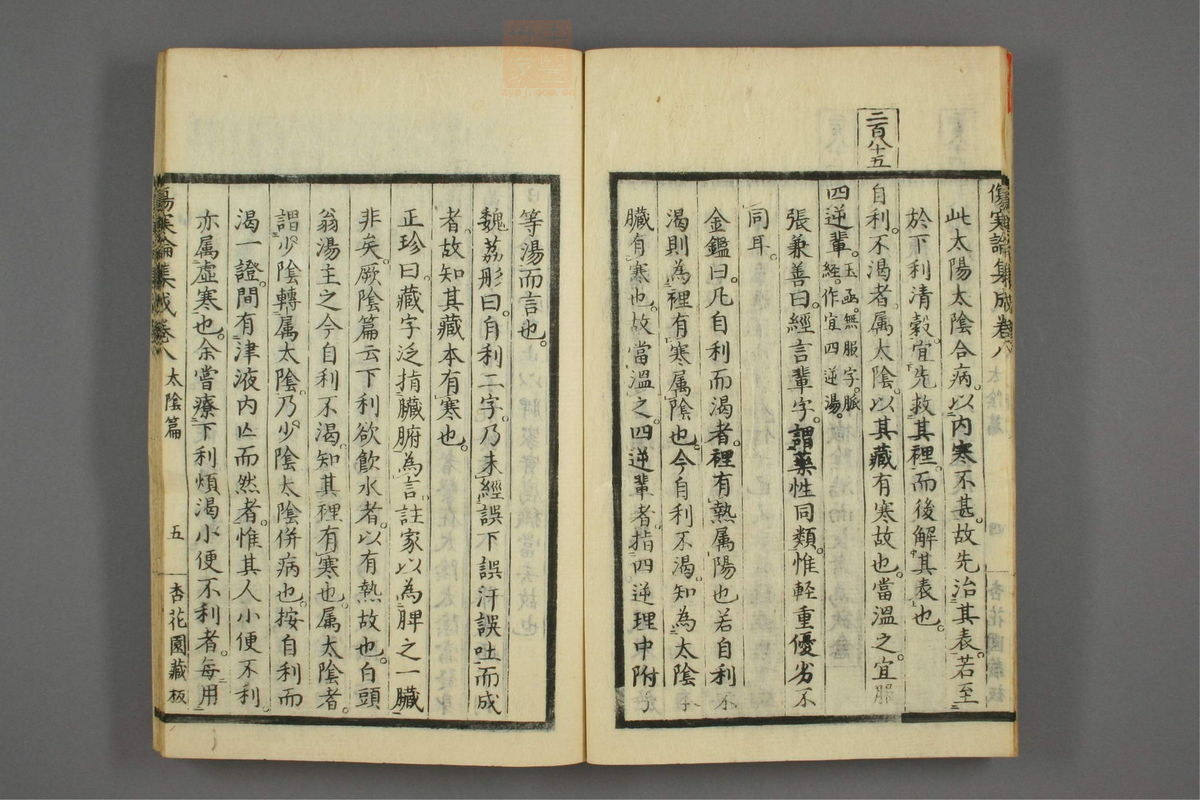 傷寒論集成卷八
此太陽太陰合病以內寒不甚故先治其表若至
於下利清穀宜先救其裡而後解其表也
二百八十五
自利不渴者属太陰以其藏有寒故也當溫之宜服
四逆輩玉函無服字脈
經作宜四逆湯
張兼善曰經言輩字謂藥性同類惟軽重優劣不
同耳
金鑑曰凡自利而渴者裡有熱属陽也若自利不
渴則為裡有寒属陰也今自利不渴知為太陰
臓有寒也故當溫之四逆輩者指四逆理中附子
等湯而言也
魏荔彤曰自利二字乃未經誤下誤汗誤吐而成
者故知其藏本有寒也
正珍曰藏字泛指臓腑為言註家以為脾之一臓
非矣厥陰篇云下利欲飲水者以有熱故也白頭
翁湯主之今自利不渴知其裡有寒也属太陰者
謂少陰轉属太陰乃少陰太陰併病也按自利而
渴一證間有津液內亡而然者惟其人小便不利
亦属虛寒也余嘗療下利煩渴小便不利者每用
傷寒論集成卷八 太陰篇 五 杏花園藏板